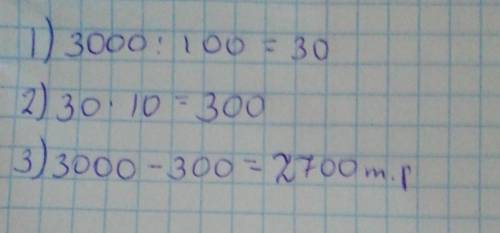 1) 3000 : 100 = 30
2) 30 · 10 = 300
3) 3000 - 300 = 2700 т.р